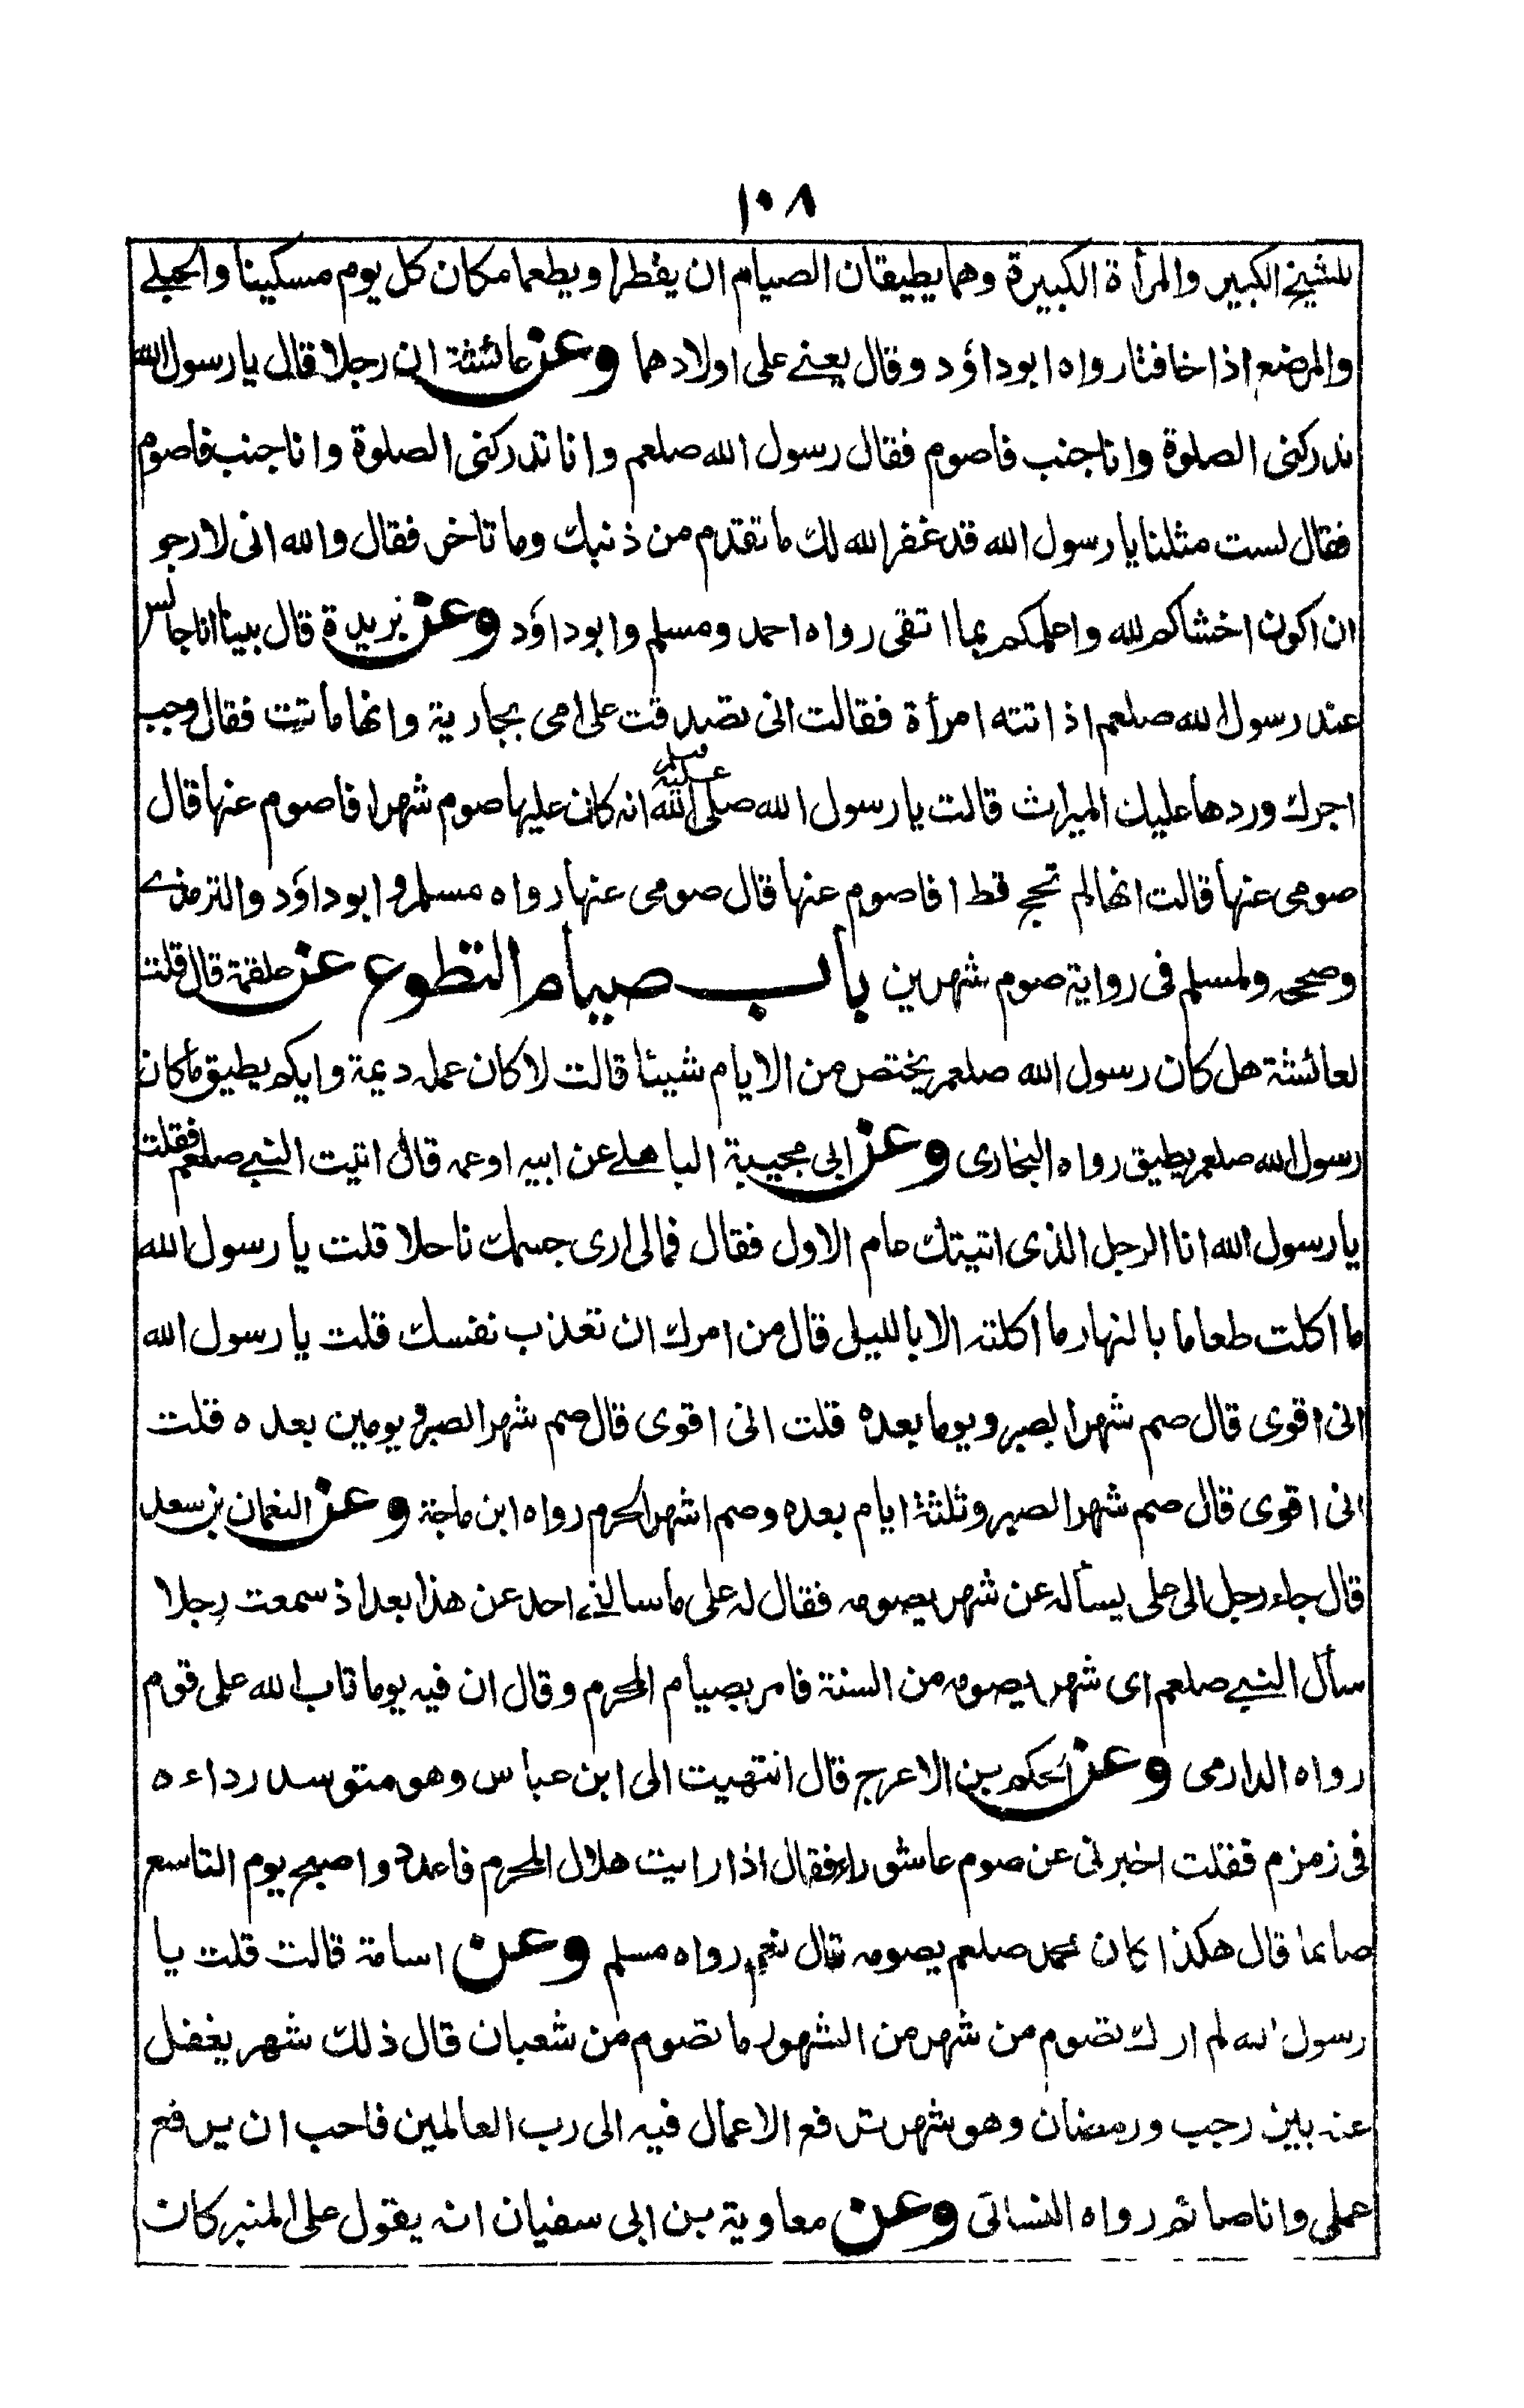 ١٠٨
للشيخ الكبير والمرأة الكبيرة وهما يطيقان الصيام ان يفطرا ويطعما مكان كل يوم مسكينا والحبلے
والمرضع اذا خافتا رواه ابوداؤد وقال يعنے على اولادهما وعن عائشة ان رجلا قال يا رسول الله
تدركنى الصلوة وانا جنب فاصوم فقال رسول الله صلعم وانا تدركنى الصلوة وانا جنب فاصوم
فقال لست مثلنا يا رسول الله قد غفر الله لك ما تقدم من ذنبك وما تاخر فقال والله انى لارجو
ان اكون اخشاكم لله واعلمكم بما اتقى رواه احمد ومسلم وابوداؤد وعن بريدة قال بينا انا جالس
عند رسول الله صلعم اذ اتته امرأة فقالت انى تصدقت على امى بجارية وانها ماتت فقال وجب
اجرك وردها عليك الميراث قالت يا رسول الله صلى الله عليه وسلم انه كان عليها صوم شهر افاصوم عنها قال
صومى عنها قالت انها لم تحج قط افاصوم عنها قال صومى عنها رواه مسلم وابوداؤد والترمذے
وصححه ولمسلم فى رواية صوم شهرين باب صيام التطوع عن علقمة قال قلت
لعائشة هل كان رسول الله صلعم يختص من الايام شيئا قالت لا كان عمله ديمة وايكم يطيق ما كان
رسول الله صلعم يطيق رواه البخارى وعن ابى مجيبة الباهلے عن ابيه او عمه قال اتيت النبے صلعم فقلت
يا رسول الله انا الرجل الذى اتيتك عام الاول فقال فمالى ارى جسمك ناحلا قلت يا رسول الله
ما اكلت طعاما بالنهار ما اكلته الا بالليلى قال من امرك ان تعذب نفسك قلت يا رسول الله
انى اقوى قال صم شهر الصبر ويوما بعده قلت انى اقوى قال صم شهر الصبر ويومين بعده قلت
انى اقوى قال صم شهر الصبر وثلثة ايام بعده وصم اشهر الحرم رواه ابن ماجة وعن النعمان بن سعد
قال جاء رجل الى على يسأله عن شهر يصومه فقال له على ما سالنے احد عن هذا بعد اذ سمعت رجلا
سأل النبے صلعم اى شهر يصومه من السنة فامر بصيام المحرم وقال ان فيه يوما تاب الله على قوم
رواه الدارمى وعن الحكم بن الاعرج قال انتهيت الى ابن عباس وهو متوسد رداءه
فى زمزم فقلت اخبرنى عن صوم عاشوراء فقال اذا رايت هلال المحرم فاعدد واصبح يوم التاسع
صائما قال هكذا كان محمد صلعم يصومه قال نعم رواه مسلم وعن اسامة قالت قلت يا
رسول الله لم ارك تصوم من شهر من الشهور ما تصوم من شعبان قال ذلك شهر يغفل
عنه بين رجب ورمضان وهو شهر ترفع الاعمال فيه الى رب العالمين فاحب ان يرفع
عملى وانا صائم رواه النسائى وعن معاوية بن ابى سفيان انه يقول على المنبر كان